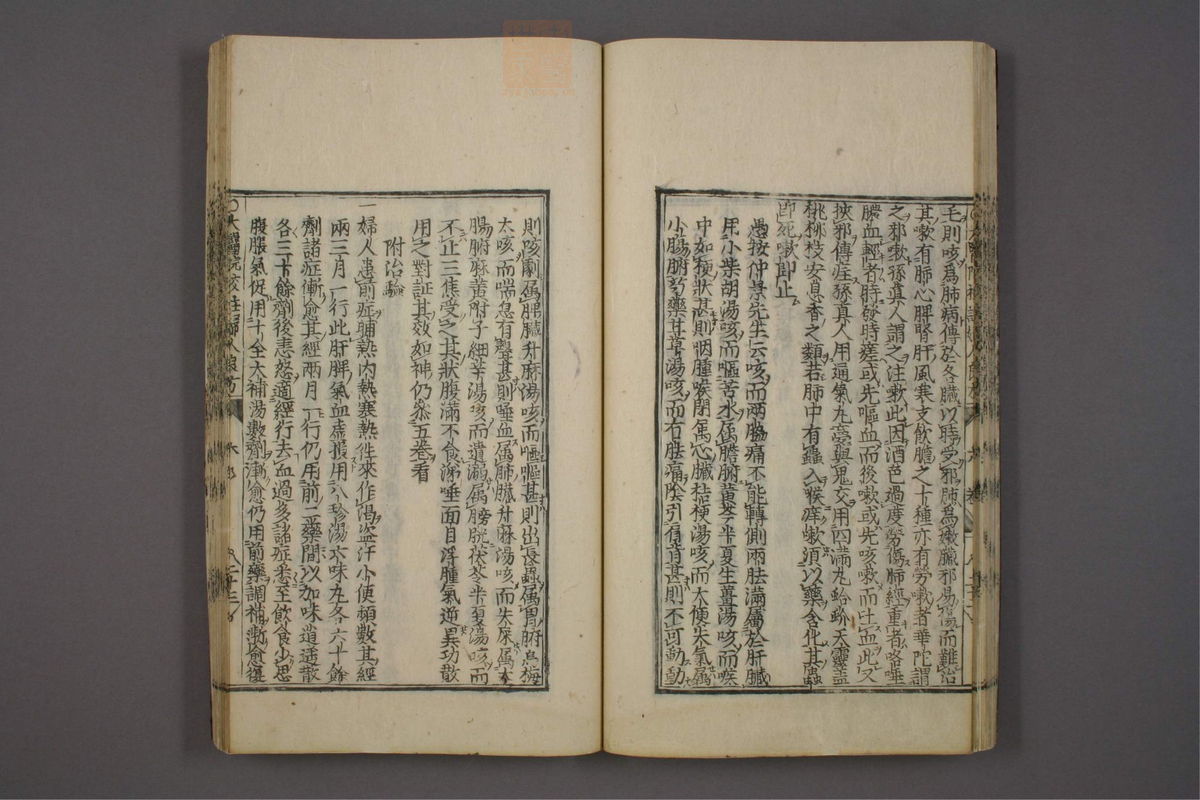 毛則咳爲肺病傳於各臟以時受邪肺爲嫩臟邪易傷而難治
其嗽有肺心脾腎肝風寒支飲膽之十種亦有勞嗽者華陀謂
之邪嗽孫真人謂之注嗽此因酒色過度勞傷肺經重者咯唾
膿血輕者時發時瘥或先嘔血而後嗽或先咳嗽而吐血此又
挾邪傳疰孫真人用通氣丸蒙與鬼交用四滿丸蛤蚧天靈蓋
桃枝安息香之類若肺中有蟲入喉痒嗽須以藥含化其蟲
即死嗽即止
愚按仲景先生云咳而兩脇痛不能轉側兩胠滿屬於肝臟
用小柴胡湯咳而嘔苦水属膽腑黄芩半夏生薑湯咳而喉
中如梗狀甚則咽腫喉閉属心臟桔梗湯咳而大便失氣属
小腸腑芍藥甘草湯咳而右胠痛陰引肩背甚則不可動動
則咳劇属脾臟升麻湯咳而嘔嘔甚則出長蟲属胃腑烏梅
太咳而喘息有聲甚則唾血属肺臟升麻湯咳而失屎属大
腸腑麻黄附子細辛湯咳而遺溺属膀胱茯苓半夏湯咳而
不止三焦受之其狀腹滿不食涕唾面目浮腫氣逆異功散
用之對証其效如神仍叅五卷看
附治驗
一婦人患前症晡熱内熱寒熱徃來作渴盗汗小便頻數其經
兩三月一行此肝脾氣血虚損用八珍湯六味丸各六十餘
劑諸症漸愈其經兩月一行仍用前二藥間以加味逍遥散
各三十餘劑後恚怒適經行去血過多諸症悉至飲食少思
腹脹氣促用十全大補湯數劑漸愈仍用前藥調補漸愈復